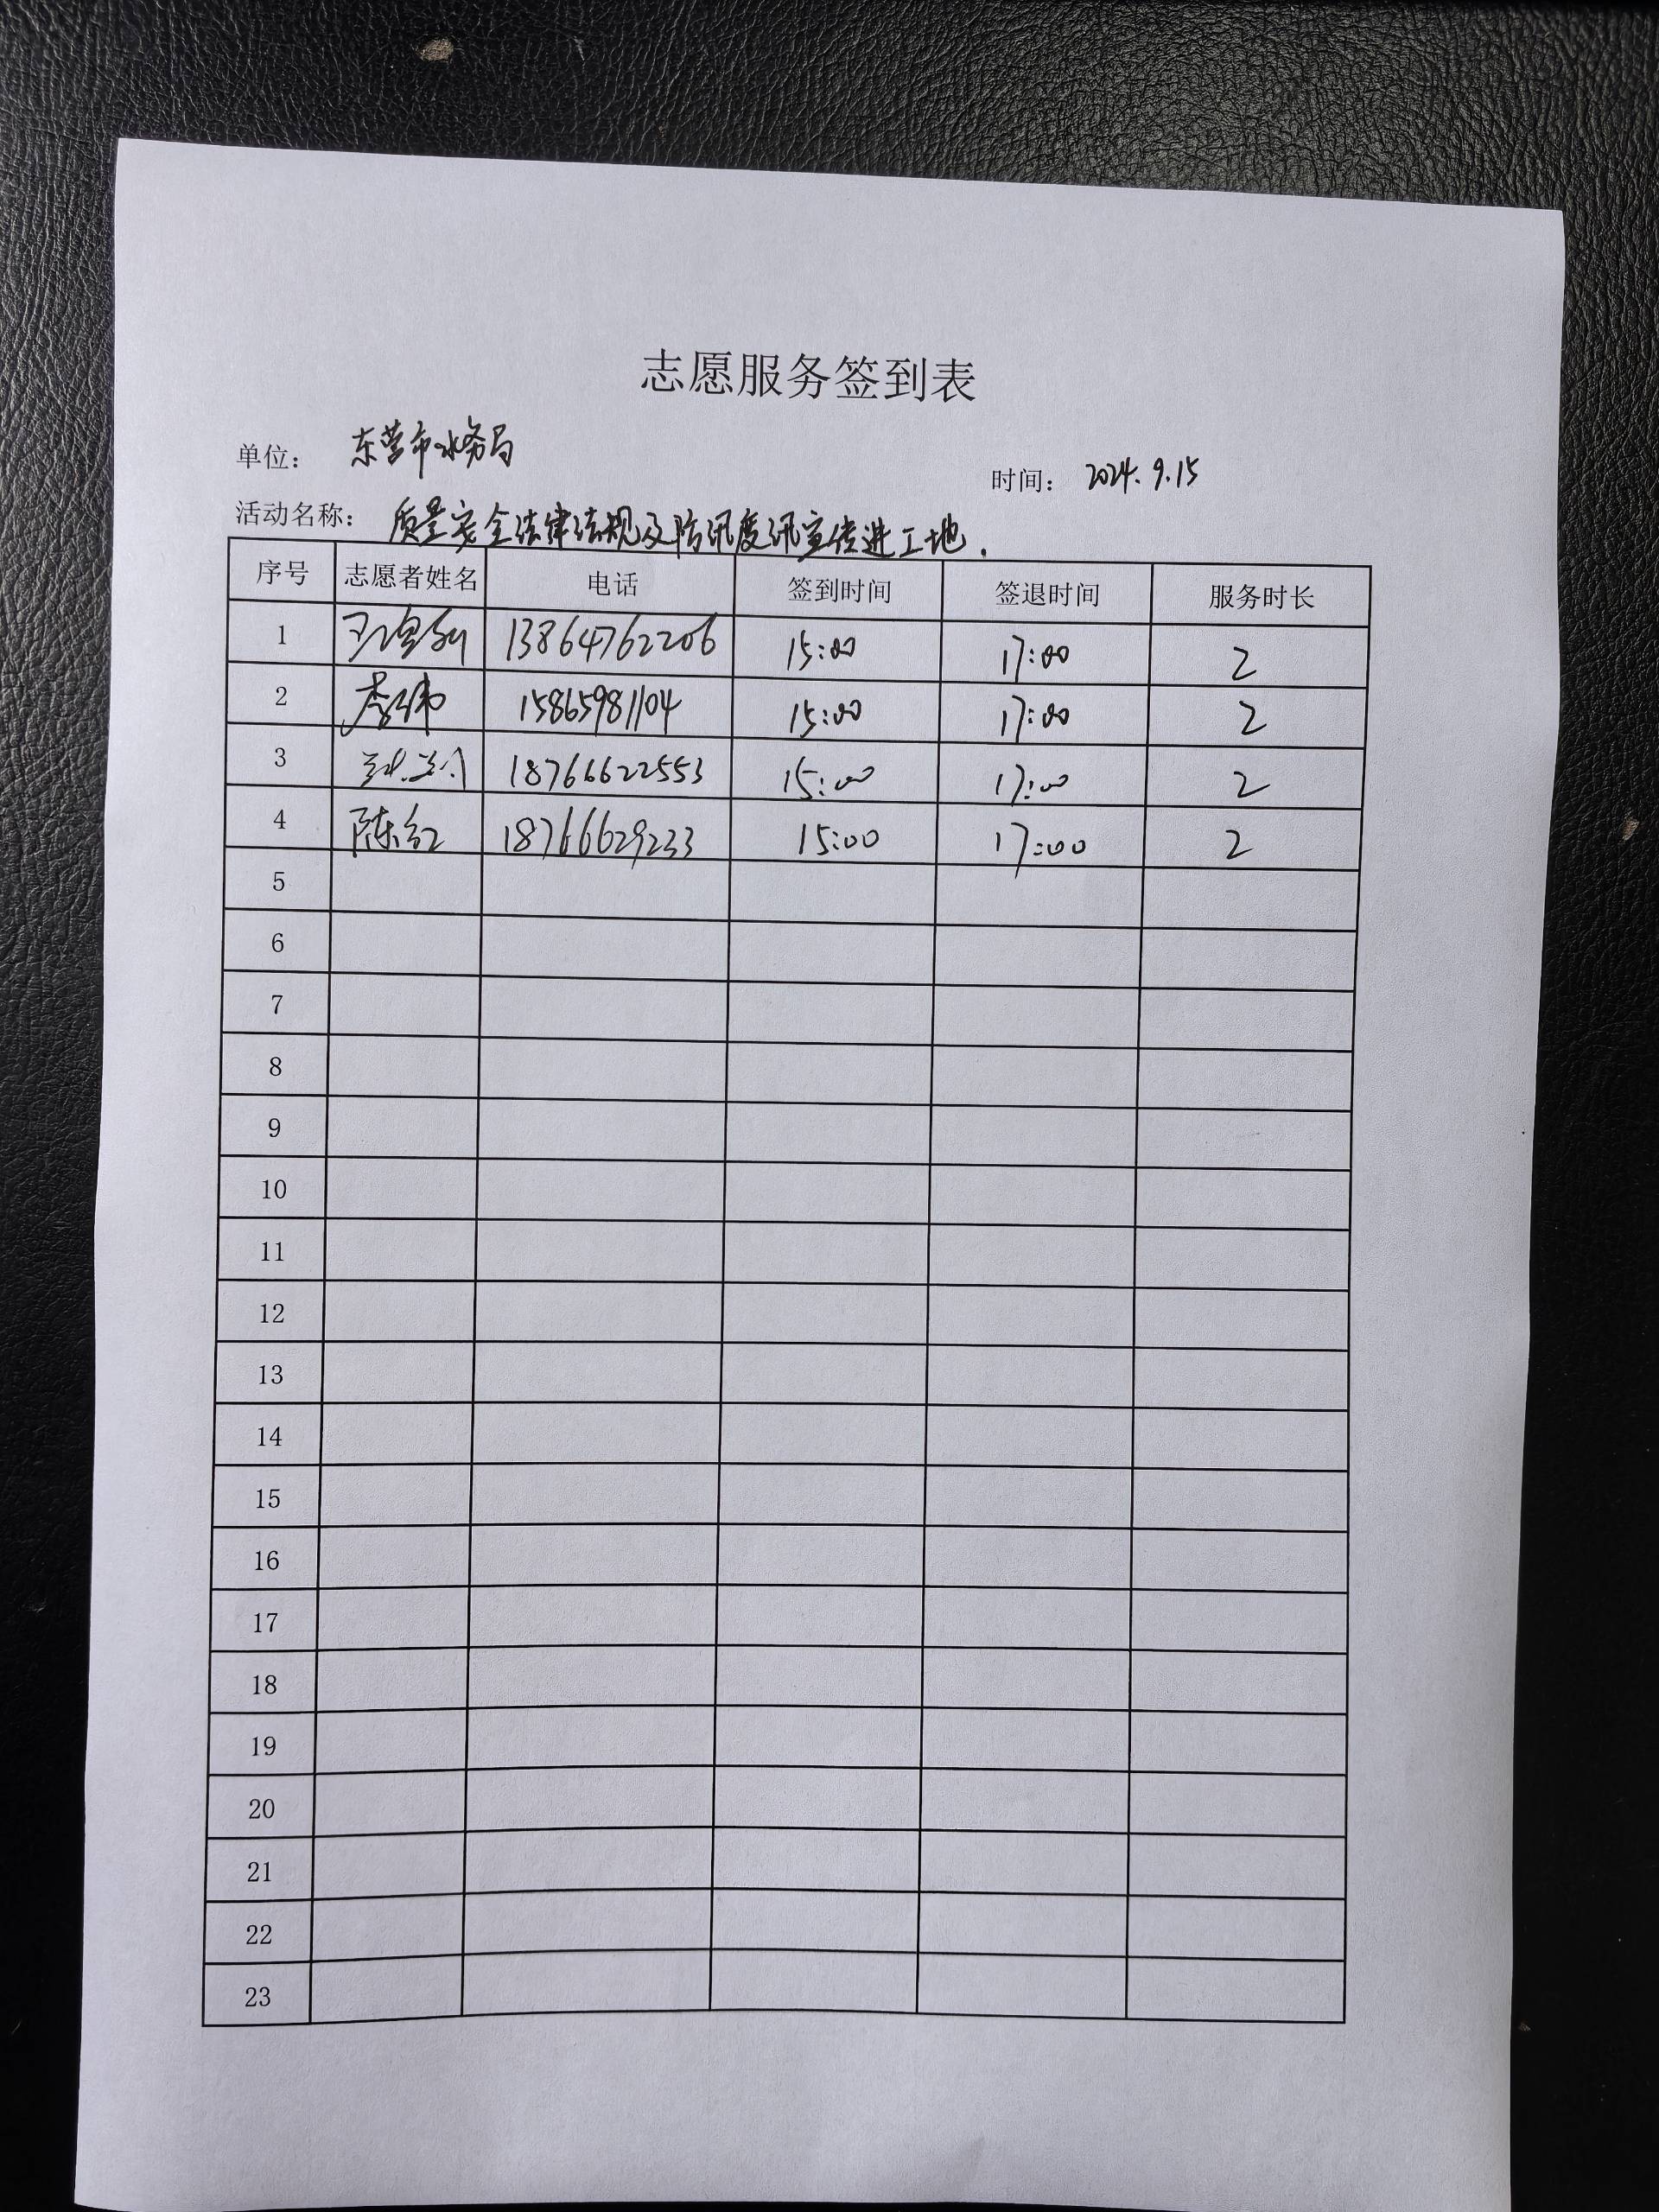 志愿服务签到表
单位： 东营市水务局
时间： 2024.9.15
活动名称： 质量安全法律法规及防汛度汛宣传进工地.
序号 志愿者姓名 电话 签到时间 签退时间 服务时长
1 13864762206 15:00 17:00 2
2 李伟 15865981104 15:00 17:00 2
3 18766622553 15:00 17:00 2
4 陈红 18766629233 15:00 17:00 2
5
6
7
8
9
10
11
12
13
14
15
16
17
18
19
20
21
22
23